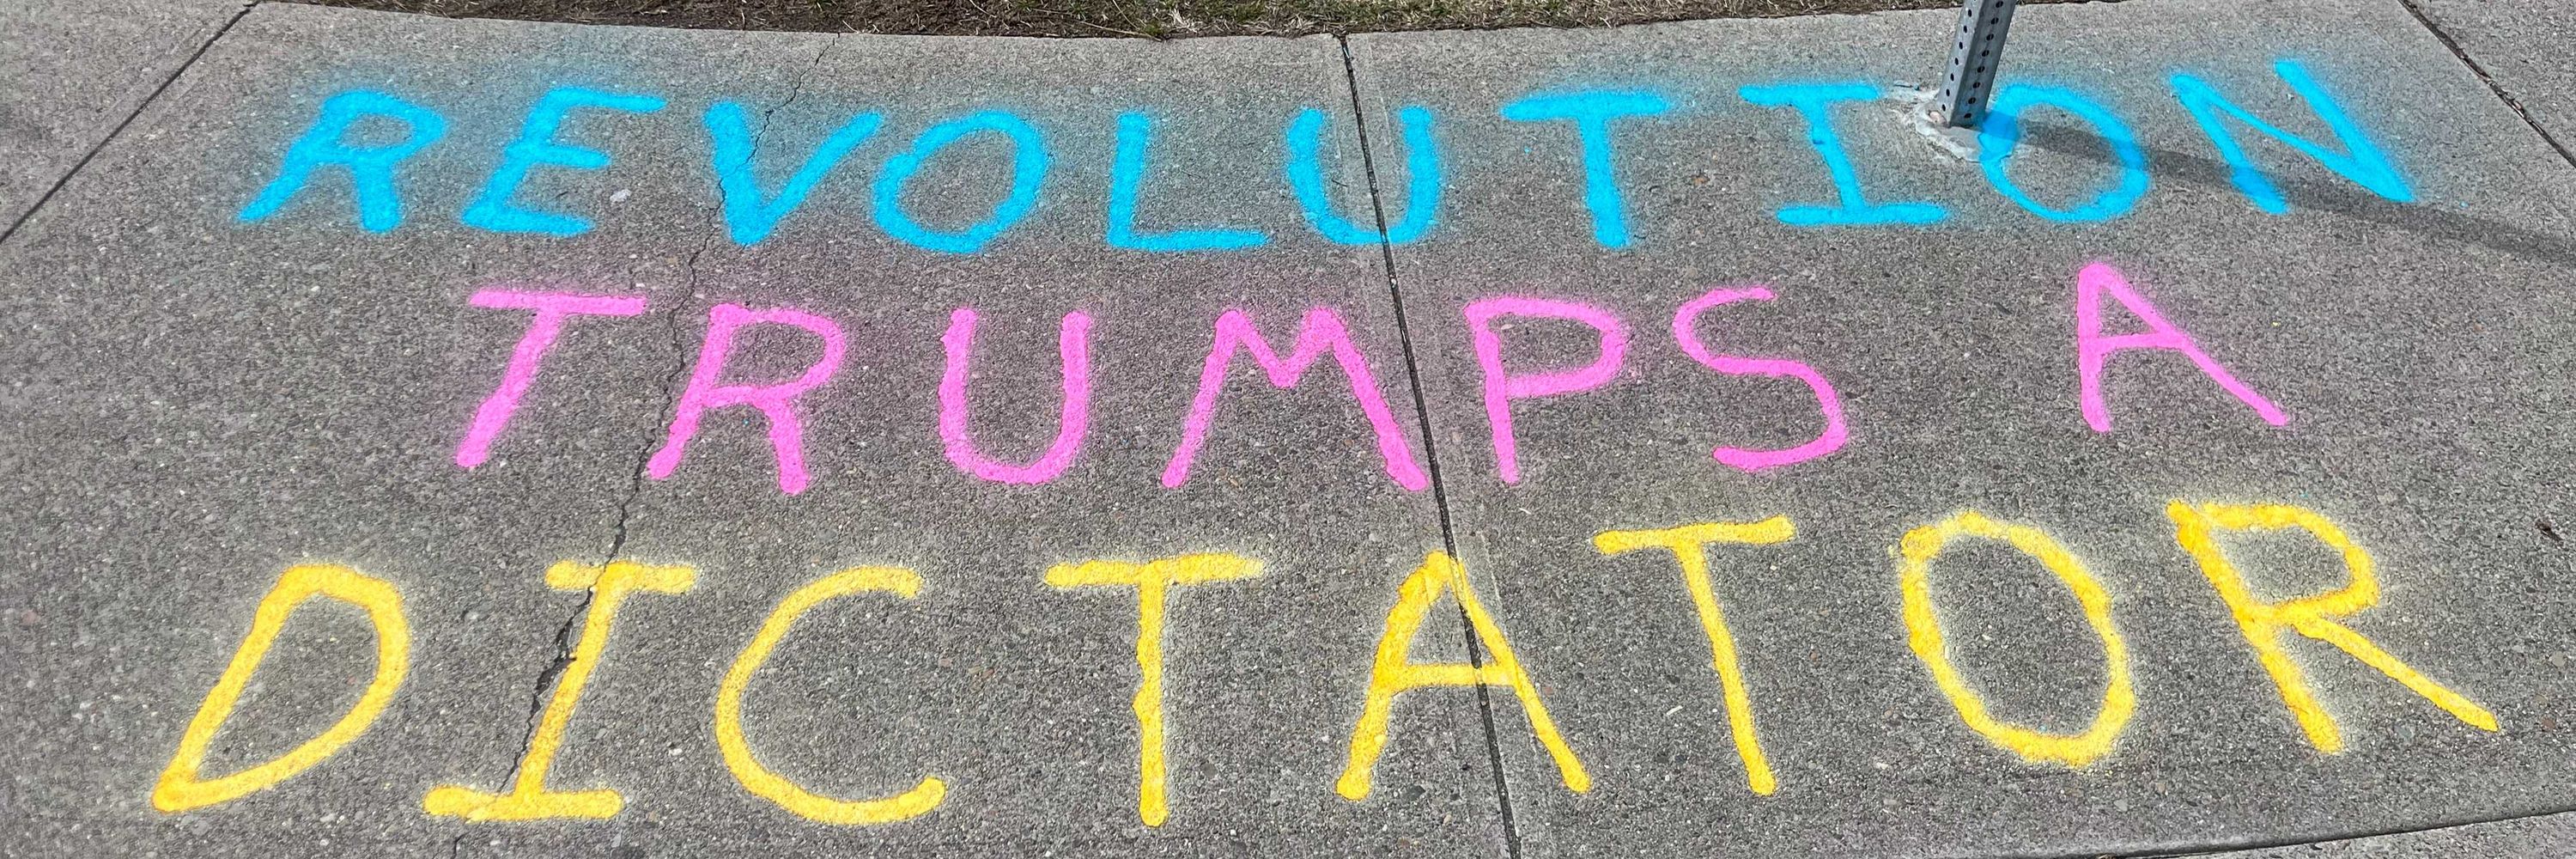 REVOLUTION
TRUMPS A
DICTATOR